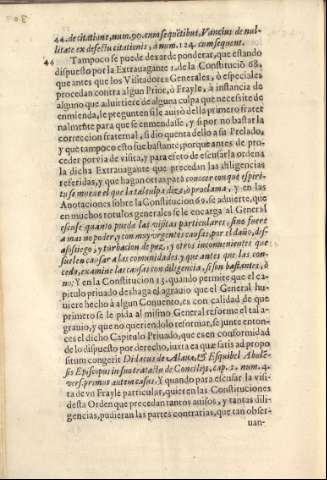 44. de citatione, num. 90. cum sequētibut. Vancius de nul-
litate ex defectu citationis, à num. 124. cum sequent.
44 Tampoco se puede dexar de ponderar, que estando
dispuesto por la Extrauagante 1. de la Constituciō 68,
que antes que los Visitadores Generales, ò especiales
procedan contra algun Prior, ò Frayle, à instancia de
alguno que aduirtiere de alguna culpa que necessite de
enmienda, le pregunten si le auisò dello primero frater
nalmēte para que se enmendasse, y si por no bastar la
correccion fraternal, si dio quenta dello a su Prelado,
y que tampoco esto fue bastante; porque antes de pro-
ceder por via de visita, y para efeto de escusarla ordena
la dicha Extrauagante que precedan las diligencias
referidas, y que hagan otras para conocer con què espiri-
tu se mueue el que la tal culpa dize, ò proclama, y en las
Anotaciones sobre la Constitucion 69. se aduierte, que
en muchos rotulos generales se le encarga al General
escuse quanto pueda las visitas particulares, sino fuere
a mas no poder, y con muy vrgentes causas por el daño, des-
assosiego, y turbacion de paz, y otros inconuenientes que
suelen causar a las comunidades, y que antes que las con-
ceda, examine las causas con diligencia, si son bastantes, ò
no; Y en la Constitucion 15. quando permite que el ca-
pitulo priuado deshaga el agrauio que el General hu-
uiere hecho à algun Conuento, es con calidad de que
primero se le pida al mismo General reforme el tal a-
grauio, y que no queriendolo reformar, se junte enton-
ces el dicho Capitulo Priuado, que es en conformidad
de lo dispuesto por derecho, iuxta ea quæ satis ad propo
situm congerit Didacus de Alaua, & Esquibel Abulē-
sis Episcopus in suo tractatu de Concilijs, cap. 2. num. 4.
vers. primus autem casus. Y quando para escusar la visi-
ta de vn Frayle particular, quieren las Constituciones
desta Orden que precedan tantos auisos, y tantas dili-
gencias, pudieran las partes contrarias, que tan obser-
uan-